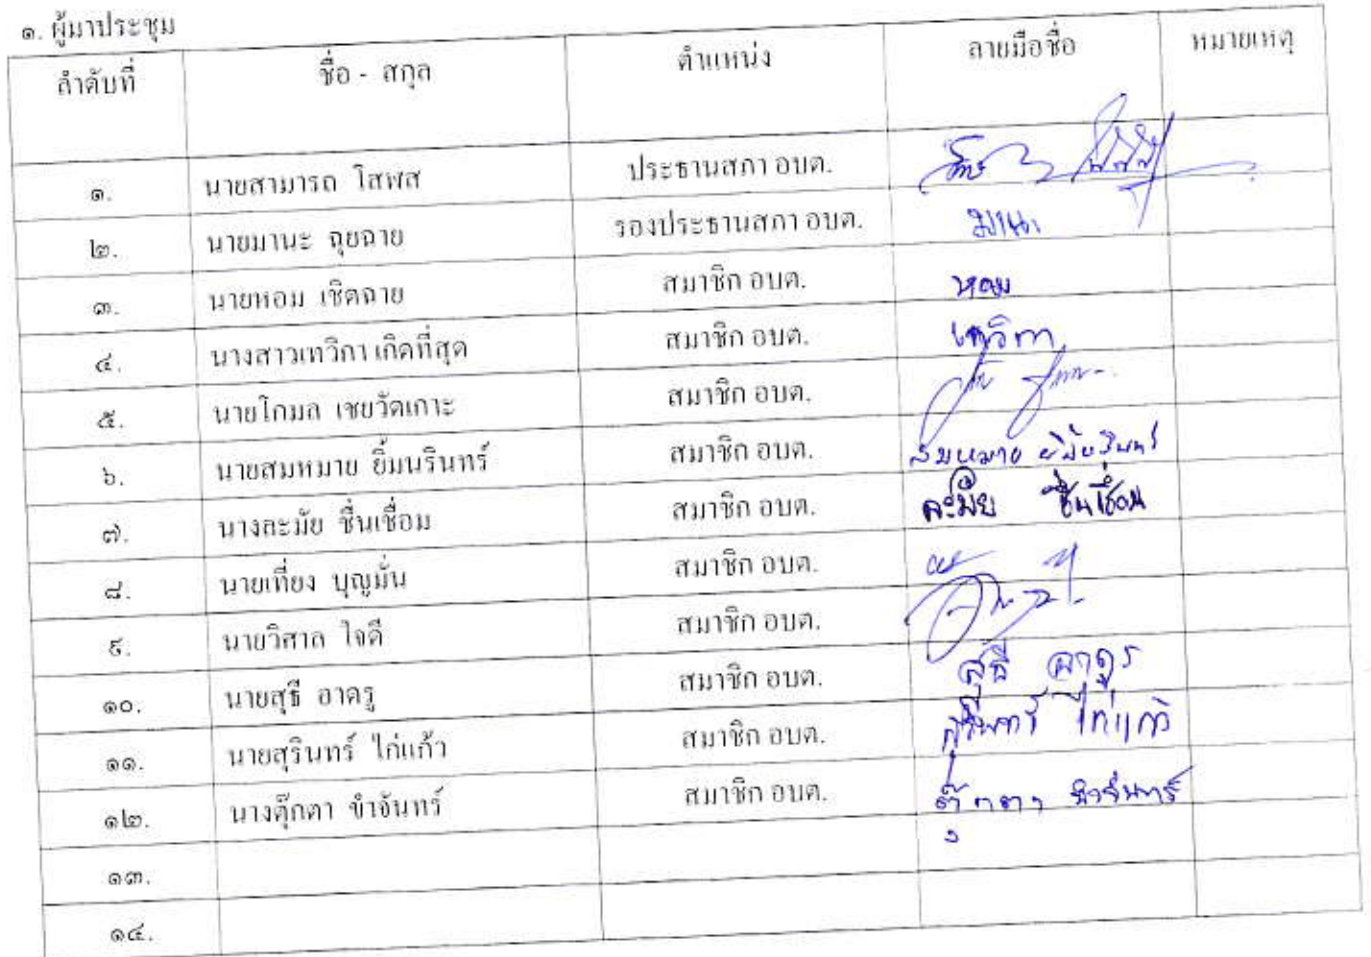 ๑. ผู้มาประชุม
ลำดับที่ ชื่อ - สกุล ตำแหน่ง ลายมือชื่อ หมายเหตุ
๑. นายสามารถ โสพส ประธานสภา อบต.
๒. นายมานะ ฉุยฉาย รองประธานสภา อบต. มานะ
๓. นายหอม เชิดฉาย สมาชิก อบต. หอม
๔. นางสาวเทวิกา เกิดที่สุด สมาชิก อบต. เทวิกา
๕. นายโกมล เชยวัดเกาะ สมาชิก อบต.
๖. นายสมหมาย ยิ้มนรินทร์ สมาชิก อบต. สมหมาย ยิ้มนรินทร์
๗. นางละมัย ชื่นเชื่อม สมาชิก อบต. ละมัย ชื่นเชื่อม
๘. นายเที่ยง บุญมั่น สมาชิก อบต.
๙. นายวิศาล ใจดี สมาชิก อบต.
๑๐. นายสุธี อาดรู สมาชิก อบต. สุธี
๑๑. นายสุรินทร์ ไก่แก้ว สมาชิก อบต. สุรินทร์ ไก่แก้ว
๑๒. นางตุ๊กตา ขำจันทร์ สมาชิก อบต. ตุ๊กตา ขำจันทร์
๑๓.
๑๔.